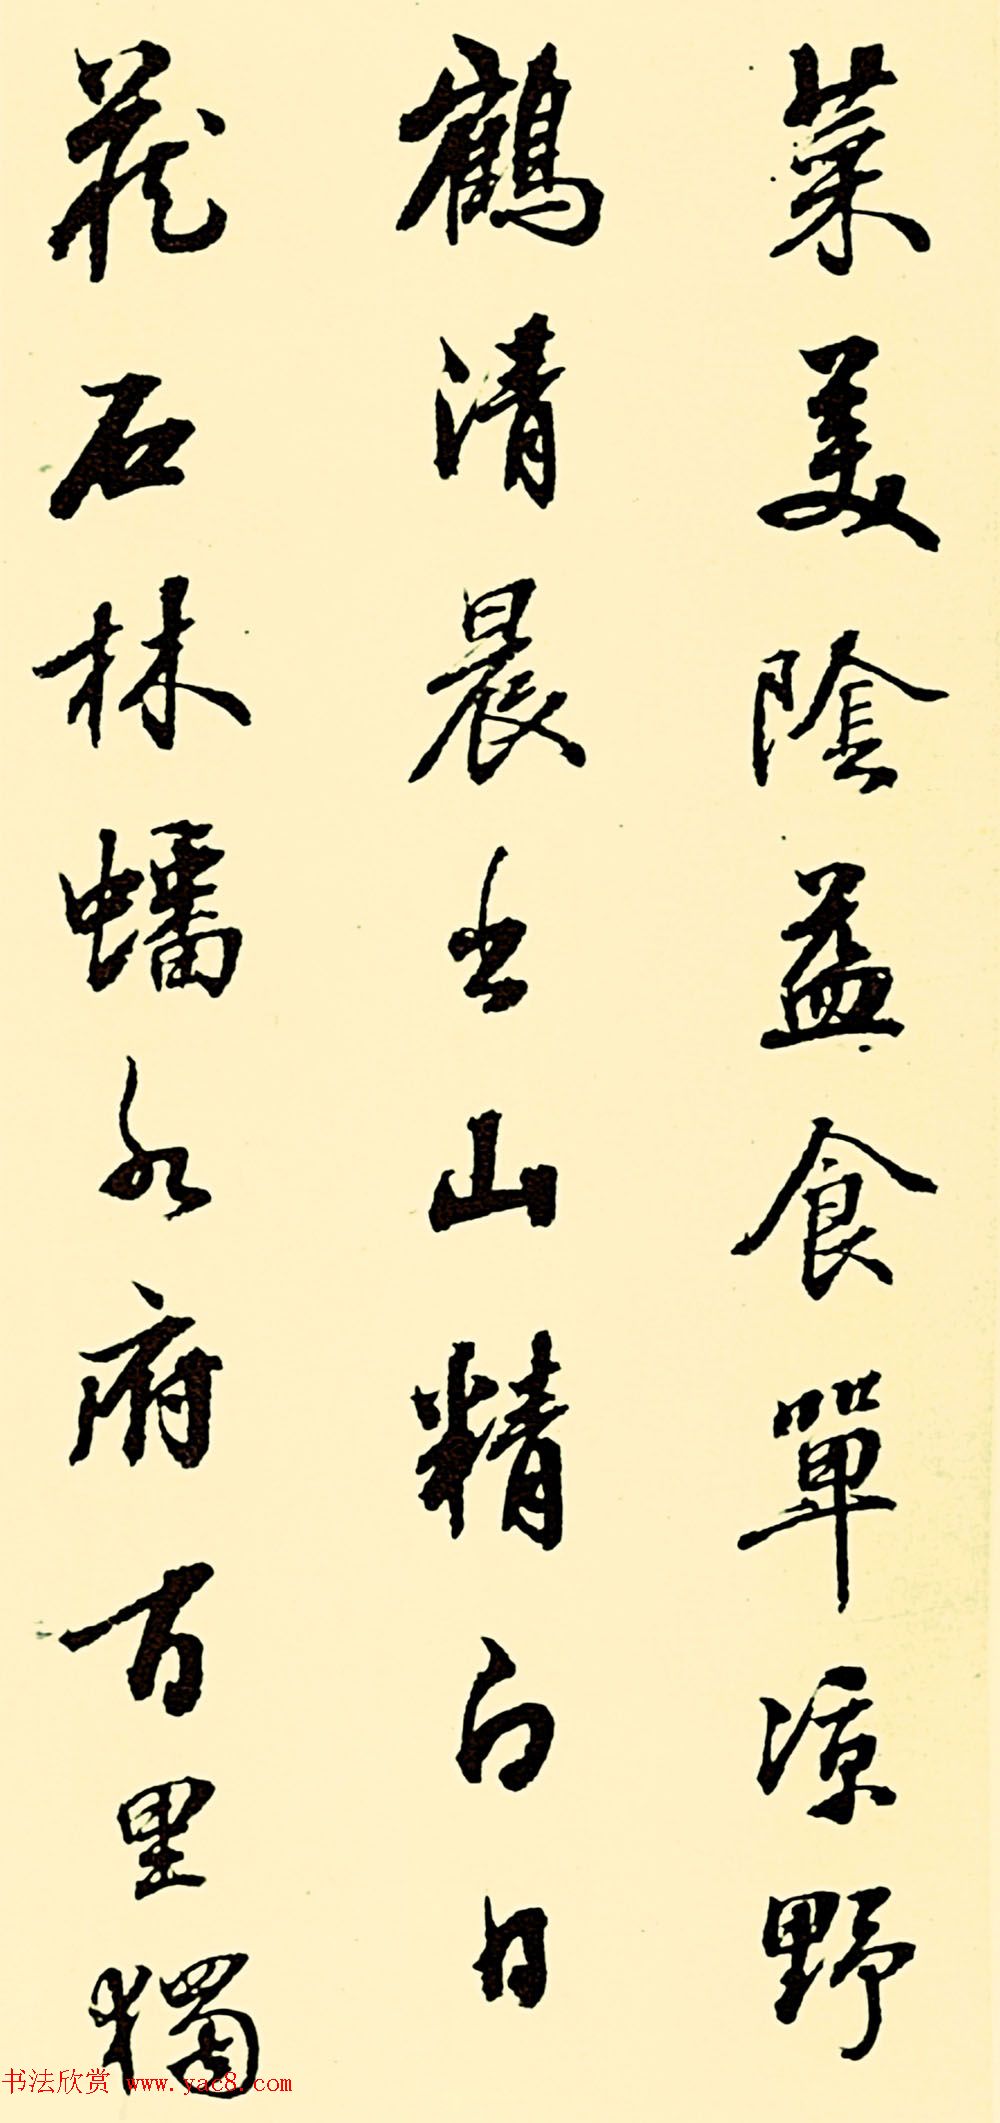 菜美陰益食單涼野
鶴清晨出山精白日
藏石林蟠水府百里獨
书法欣赏 www.yac8.com